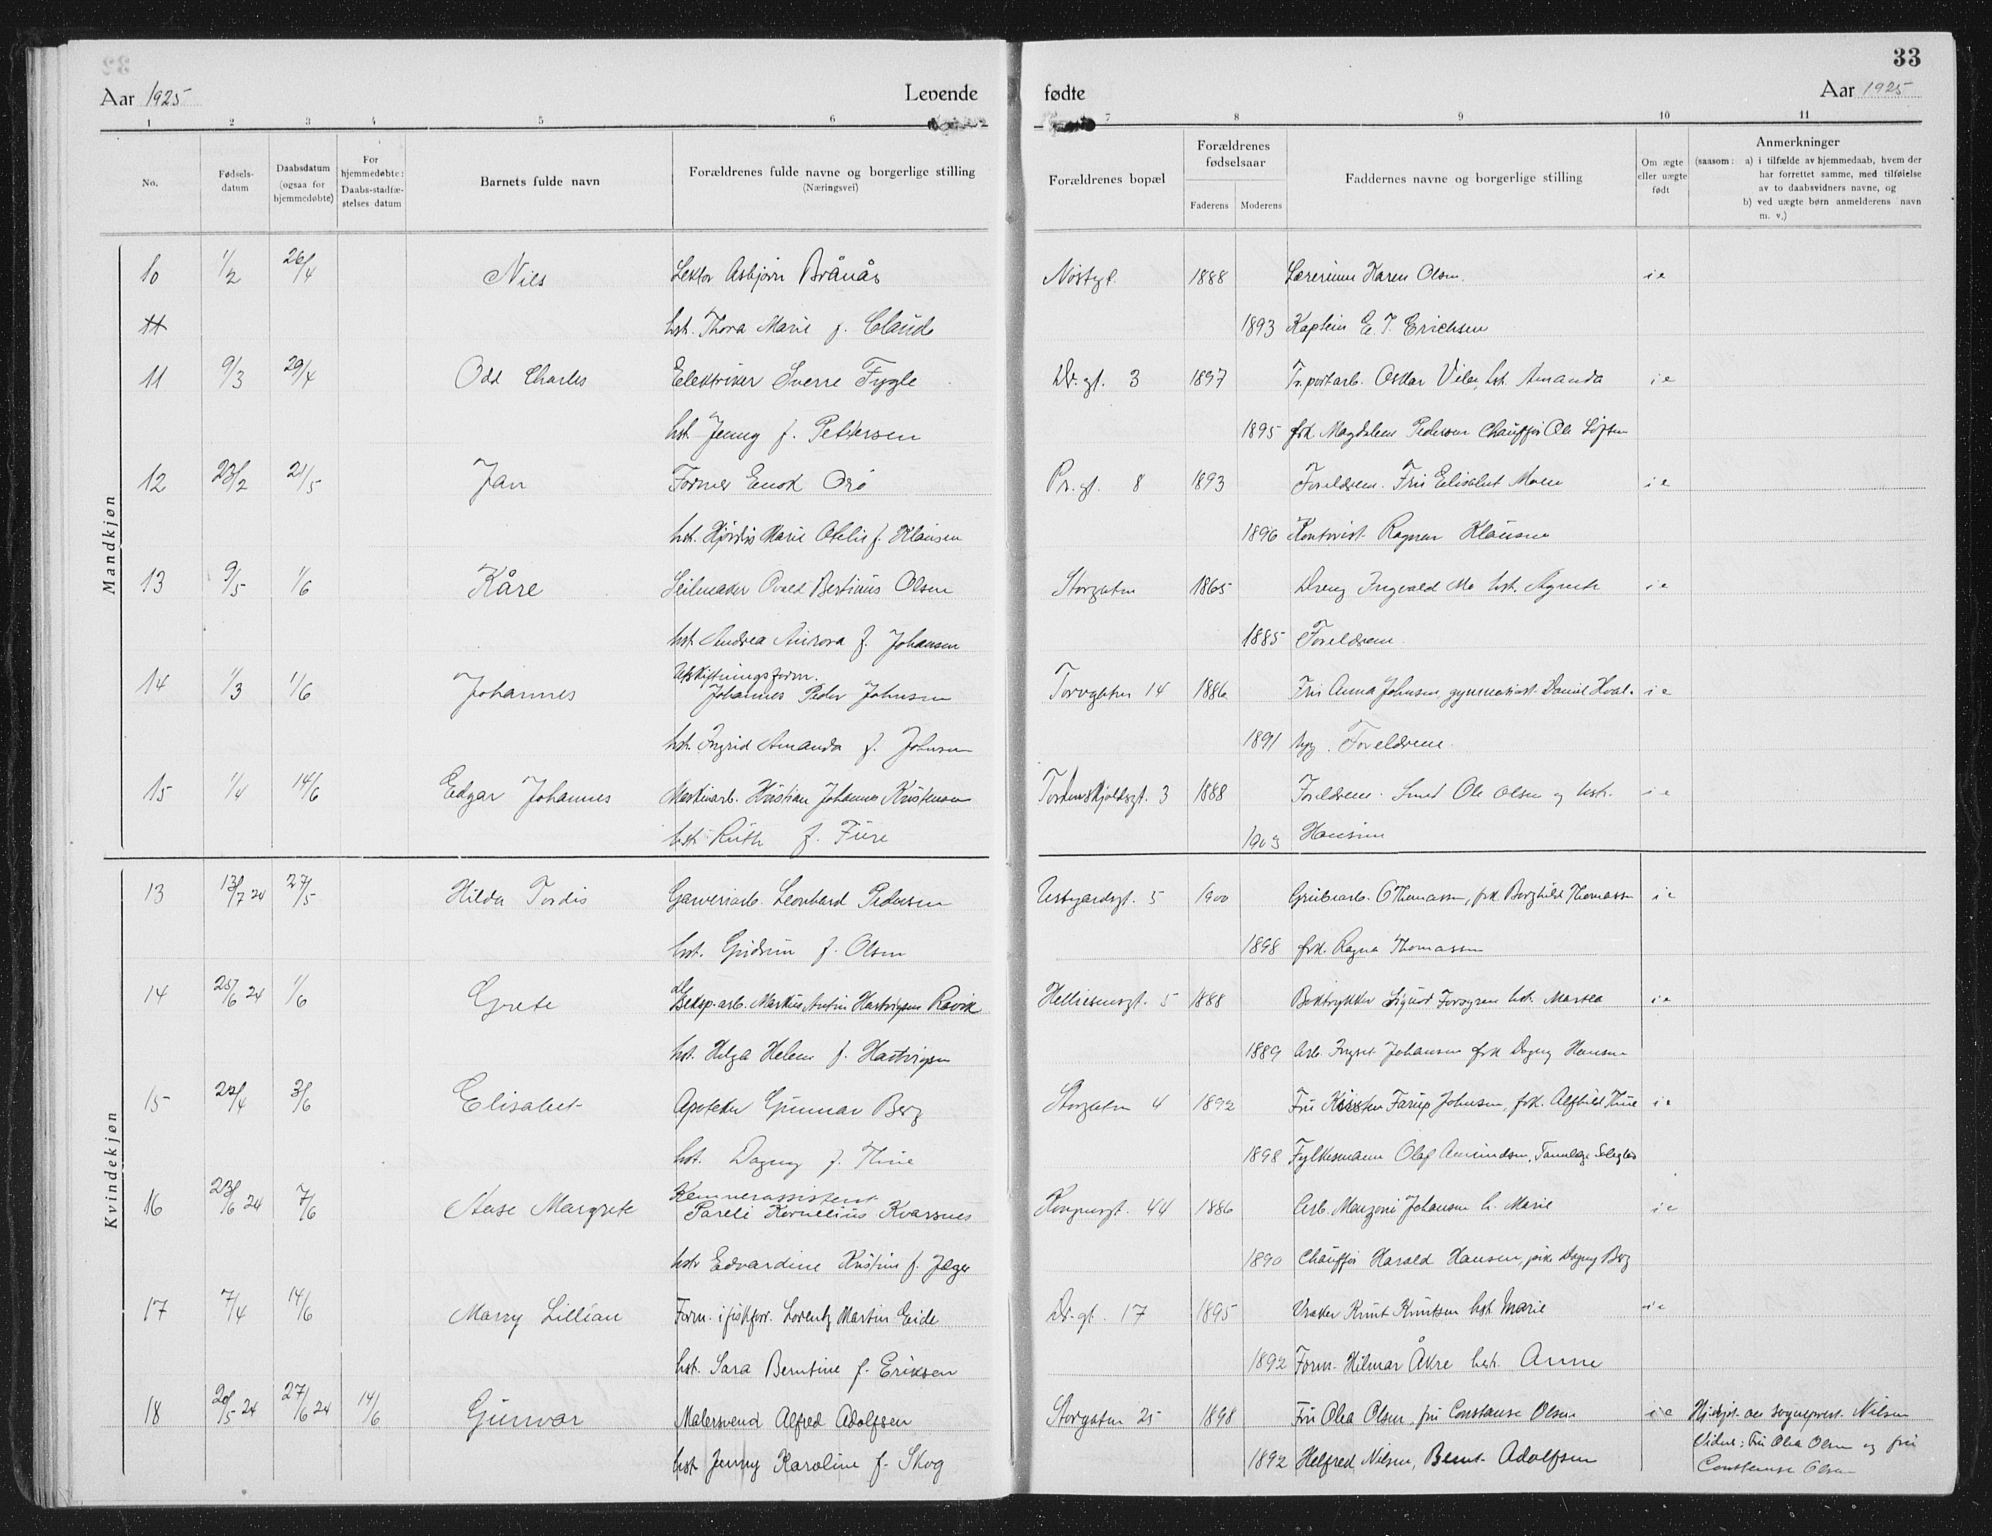 33
Aar 1925
Levende
fødte
Aar 1925
1 2 3 4 5 6 7 8 9 10 11
No.
Fødsels-
datum
Daabsdatum
(ogsaa for
hjemmedøbte)
For
hjemmedøbte:
Daabs-stadfæ-
stelses datum
Barnets fulde navn
Forældrenes fulde navne og borgerlige stilling
(Næringsvei)
Forældrenes bopæl
Forældrenes
fødselsaar
Faderens Moderens
Faddernes navne og borgerlige stilling
Om ægte
eller uægte
født
Anmerkninger
(saasom: a) i tilfælde av hjemmedaab, hvem der
har forrettet samme, med tilføielse
av to daabsvidners navne, og
b) ved uægte børn anmelderens navn
m. v.)
Mandkjøn
10 1/2 26/4 Nils Lektor Asbjørn Brånås 1888 Lærerinne Karen Olsen. i e
11 hst. Thora Marie f. Claude 1893 Kaptein E. T. Erichsen
11 9/3 29/4 Odd Charles Elektriker Sverre Fygle Dr. gt. 3 1897 Tr.portarb. Oskar hst. Amanda i e
hst. Jenny f. Pettersen 1895 frk. Magdalene Pedersen Chauffør Ole
12 23/2 21/5 Jan Former Enok Pr. gt. 8 1893 Foreldrene. Fru Elisabet Moen i e
hst. Hjørdis Marie Otelie f. Klausen 1896 Kontorist Ragnar Klausen
13 9/5 1/6 Kåre Seilmaker Bertinus Olsen Storgaten 1865 Dreng Ingvald Mo hst. i e
hst. Andrea Aurora f. Johansen 1885 Foreldrene.
14 1/3 1/6 Johannes Utskiftningsform.
Johannes Peder Johnsen Torvgaten 14 1886 Fru Anna Johnsen, gymnasiast Daniel Hval- i e
hst. Ingrid Amanda f. Johnsen 1891 Foreldrene.
15 1/4 14/6 Edgar Johannes Maskinarb. Kristian Johannes Kristensen Tordenskjoldsgt. 3 1888 Foreldrene. Smed Ole Olsen og hst. i e
hst. Ruth f. Fure 1903 Hansine
Kvindekjøn
13 13/7 24 27/5 Hilda Tordis Garveriarb. Leonhard Pedersen 5 1900 Grubearb. O Thomassen, frk. Borghild Thomassen i e
hst. Gudrun f. Olsen 1898 frk. Ragna Thomassen
14 25/6 24 1/6 Grete Eksp.arb. Markus Hartvigsen Ravik Helliesensgt. 5 1888 Boktrykker Sigurd hst. Martea i e
hst. Helga Helene f. Hartvigsen 1889 Arb. Johansen frk Dagny Hansen
15 22/4 3/6 Elisabet Apoteker Gunnar Berg Storgaten 4 1892 Fru Kirsten Farup Johnsen, frk. Alfhild Thue i e
hst. Dagny f. Thue 1898 Fylkesmann Olaf Amundsen,
16 23/6 24 7/6 Aase Margrete Kemnerassistent
Pareli Kornelius Kvarsnes Kongensgt. 44 1886 Arb. Johansen h. Marie i e
hst. Edvardine Kristine f. Jæger 1890 Chauffør Harald Hansen, Dagny Berg
17 7/4 14/6 Marry Lillian Form. i fiskfor. Lorentz Martin Eide Dr. gt. 17 1895 Vraker Knut Knutsen hst. Marie i e
hst. Sara Berntine f. Eriksen 1892 Form. Hilmar Åkre hst. Anne
18 20/5 24 27/6 24 14/6 Gunvor Malersvend Alfred Adolfsen Storgaten 25 1898 Fru Olea Olsen, fru Constanse Olsen i e Hj.døpt av sogneprest Nilsen
hst. Jenny Karoline f. Skog 1892 Helfred Nilsen, Bernt Adolfsen Vidner: Fru Olea Olsen og fru
Constanse Olsen